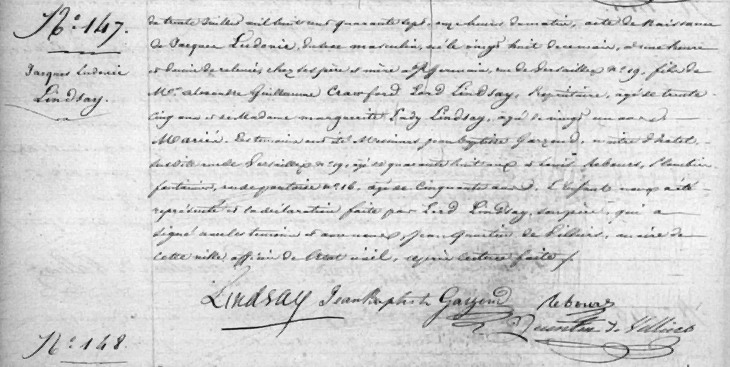 N.º 147.
Jacques Ludovic
Lindsay.
du trente Juillet mil huit cent quarante sept, onze heures du matin, acte de Naissance
de Jacques Ludovic, du sexe masculin, né le vingt huit du courant, à une heure
et demie de relevée, chez ses père et mère à St Germain, rue de Versailles nº 19. fils de
Mr. Alexandre Guillaume Crawford Lord Lindsay, Propriétaire, âgé de trente
cinq ans et de Madame marguerite Lady Lindsay, âgée de vingt un ans
Mariés. Les temoins ont été Messieurs jean baptiste Garzend, maître d'hôtel,
rue de Versailles nº 19, âgé de quarante huit ans et Rebours,
rue de pontoise nº 16, âgé de Cinquante ans. L'Enfant nous a été
représenté et la déclaration faite par Lord Lindsay, son père, qui a
signé avec les temoins et avec nous, Quentin de Villiers, maire de
cette ville officier de l'état civil, après lecture faite /.
Lindsay Jean Baptiste Garzend Rebours
Quentin de Villiers
N.º 148.